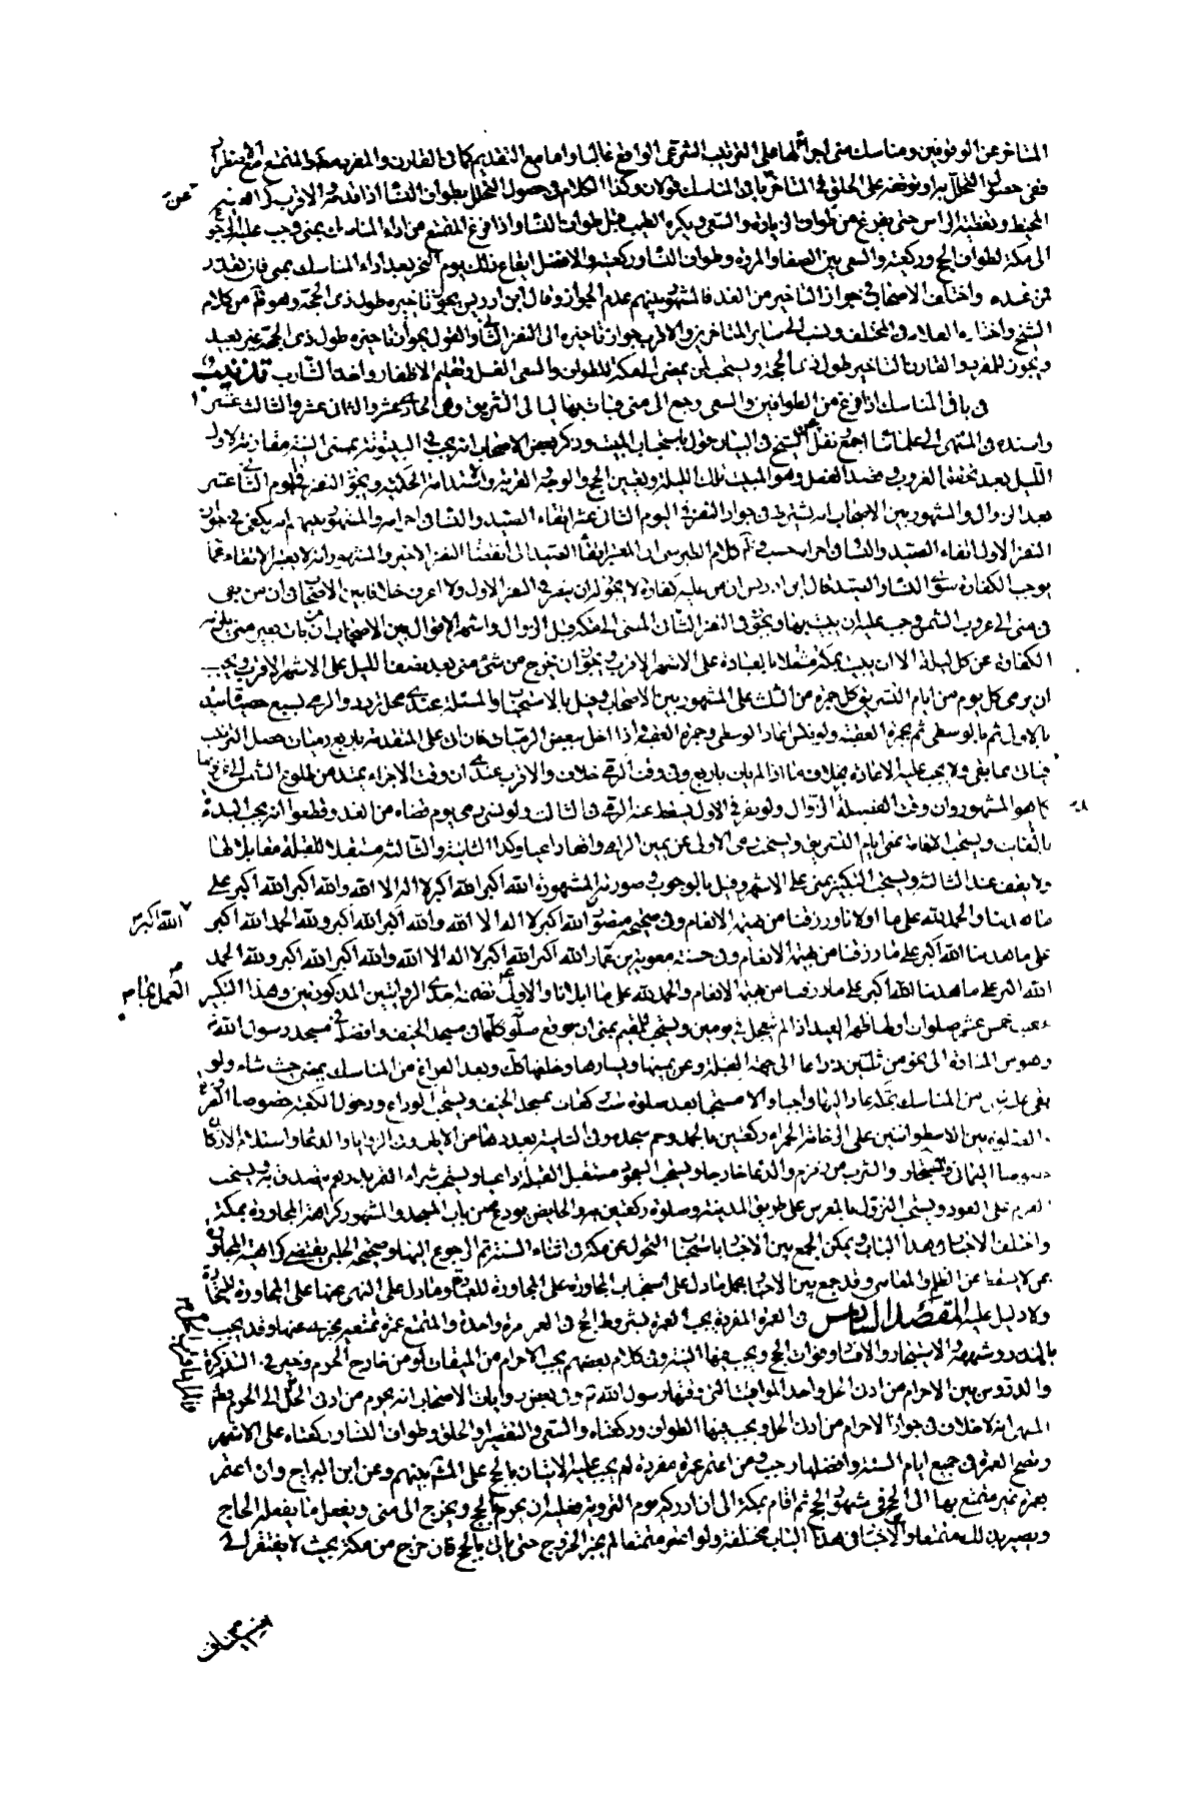 المتأخر عن الوقوفين ومناسك منى اجزائها على الترتيب الشرعى الواقع غالبا واما مع التقديم كما فى القارن والمفرد مطلقا والمتمتع مع الاضطرار
ففى حصول التحلل به او توقفه على الحلق فى المتأخر باقى المناسك قولان وكذا الكلام فى حصول التحلل بطواف النساء اذا قدم والاقرب كراهية لبس
المخيط وتغطية الراس حتى يفرغ من طواف الزيارة والسعى ويكره الطيب قبل طواف النساء واذا فرغ المتمتع من اداء المناسك بمنى وجب عليه الرجوع
الى مكة لطواف الحج وركعتيه والسعى بين الصفا والمروة وطواف النساء وركعتيه والافضل ايقاع ذلك يوم النحر بعد اداء المناسك بمنى فان تعذر
فمن غده واختلف الاصحاب فى جواز التاخير من الغد فالمشهور بينهم عدم الجواز وقال ابن ادريس يجوز تاخيره طول ذى الحجة وهو ظاهر من كلام
الشيخ واختاره العلامة فى المختلف ونسب الى ساير المتاخرين والاقرب جواز تاخيره الى النفر الثانى والقول بجواز تاخيره طول ذى الحجة غير بعيد
ويجوز للمفرد والقارن التاخير طول ذى الحجة ويستحب لمن يمضى الى مكة للطواف والسعى الغسل وتقليم الاظفار واخذ الشارب تذنيب
فى باقى المناسك اذا فرغ من الطوافين والسعى رجع الى منى فبات بها ليالى التشريق وهى الحادى عشر والثانى عشر والثالث عشر
واسنده فى المنتهى الى علمائنا اجمع ونقل عن الشيخ فى التبيان القول باستحباب المبيت وذكر بعض الاصحاب انه يجب فى البيتوتة بمنى النية مقارنة لاول
الليل بعد تحقق الغروب قصد الفعل وهو المبيت تلك الليلة وتعيين الحج والوجه والقربة واستدامة الحكمية ويجوز النفر فى اليوم الثانى عشر
بعد الزوال والمشهور بين الاصحاب انه يشترط فى جواز النفر فى اليوم الثانى عشر اتقاء الصيد والنساء فى احرامه والمشهور بينهم انه يكفى فى جواز
النفر الاول اتقاء الصيد والنساء فى احرامه حسب وفى كلام الطبرسى ان المعتبر اتقاء الصيد الى انقضاء النفر الاخير والمشهور انه لا يعتبر الاتقاء عما
يوجب الكفارة سوى النساء والصيد قال ابن ادريس ان من عليه كفارة لا يجوز له ان ينفر فى النفر الاول ولا اعرف خلافا بين الاصحاب فى ان من بقى
فى منى الى غروب الشمس وجب عليه ان يبيت بها ويجوز فى النفر الثانى المضى الى مكة قبل الزوال واشهر الاقوال بين الاصحاب ان من بات بغير منى يلزمه
الكفارة عن كل ليلة الا ان يبيت بمكة مشتغلا بالعبادة على الاشهر الاقرب ويجوز ان يخرج من منى بعد نصف الليل على الاشهر الاقرب ويجب
ان يرمى كل يوم من ايام التشريق كل جمرة من الثلث على المشهور بين الاصحاب وقيل بالاستحباب والمسئلة عندى محل تردد والرمى بسبع حصيات
بالاولى ثم بالوسطى ثم بجمرة العقبة ولو نكس اعاد الوسطى وجمرة العقبة واذا اخل ببعض الرميات فان اتى على المتقدمة باربع رميات حصل الترتيب
فياتى بما بقى ولا يجب عليه الاعادة بخلاف ما اذا لم يات باربع وفى وقت الرمى خلاف والاقرب عندى ان وقت الاجزاء يمتد من طلوع الشمس الى غروبها
كما هو المشهور وان وقت الفضيلة الزوال ولو نفر فى الاول يسقط عنه الرمى فى الثالث ولو نسى رمى يوم قضاه من الغد وقطعوا انه يجب البدأة
بالفائت ويستحب الاقامة بمنى ايام التشريق ويستحب رمى الاولى عن يمين الرامى واقفا داعيا وكذا الثانية والثالثة مستقبلا للقبلة مقابلا لها
ولا يقف عند الثالثة ويستحب التكبير بمنى على الاشهر وقيل بالوجوب وصورته المشهورة الله اكبر الله اكبر لا اله الا الله والله اكبر الله اكبر على
ما هدانا والحمد لله على ما اولانا ورزقنا من بهيمة الانعام وفى صحيحة منصور الله اكبر الله اكبر لا اله الا الله والله اكبر الله اكبر ولله الحمد الله اكبر
على ما هدانا الله اكبر على ما رزقنا من بهيمة الانعام وفى حسنة معوية بن عمار الله اكبر الله اكبر لا اله الا الله والله اكبر الله اكبر ولله الحمد
الله اكبر على ما هدانا الله اكبر على ما رزقنا من بهيمة الانعام والحمد لله على ما ابلانا والاولى نضمنه احدى الروايتين المذكورتين وهذا التكبير
عقيب خمس عشرة صلوات اولها ظهر العيد اذا لم يتعجل فى يومين ويستحب للمقيم بمنى ان يوقع صلوته كلها فى مسجد الخيف وافضله فى مسجد رسول الله
وهو من المنارة الى نحو من ثلثين ذراعا الى جهة القبلة وعن يمينها ويسارها وخلفها كك وبعد الفراغ من المناسك يمضى حيث شاء ولو
بقى عليه شئ من المناسك بمكة عاد اليها واجبا والا مستحبا بعد صلوة ست ركعات بمسجد الخيف ويستحب الوداع ودخول الكعبة خصوصا الصرورة
الصلوة بين الاسطوانتين على الرخامة الحمراء ركعتين بالحمد وحم سجدة وفى الثانية بعددها من الاى وفى الزوايا والدعاء واستلام الاركان
خصوصا اليمانى والمستجار والشرب من زمزم والدعاء خارجا ويستحب السجود مستقبل القبلة داعيا ويستحب شراء التمر بدرهم يتصدق به ويستحب
العزم على العود ويستحب النزول بالمعرس على طريق المدينة وصلوة ركعتين به والحايض يودع من باب المسجد والمشهور كراهة المجاورة بمكة
واختلف الاخبار فى هذا الباب ويمكن الجمع بين الاخبار باستحباب التحول عن مكة فى اثناء السنة ثم الرجوع اليها وصحيحة الحلبى يقتضى كراهية المجاورة
بمن لا يتحفظ عن الظلم والمعاصى وقد جمع بين الاخبار بحمل ما دل على استحباب المجاورة على المجاورة للعبادة وما دل على النهى عنها على المجاورة للتجارة
ولا دليل عليه المقصد السادس فى العمرة المفردة يجب العمرة بشروط الحج فى العمر مرة واحدة والمتمتع عمرة تمتعه يجزيه عنها وقد يجب
بالنذر وشبهه والاستيجار والافساد وفوات الحج ويجب فيها النية وفى كلام بعضهم يجب الاحرام من الميقات او من خارج الحرم وخير فى التذكرة
والدروس بين الاحرام من ادنى الحل واحد المواقيت التى وقتها رسول الله ص وفى بعض روايات الاصحاب انه يحرم من ادنى الحل الى الحرم وظاهر
المنتهى انه لا خلاف فى جواز الاحرام من ادنى الحل ويجب فيها الطواف وركعتاه والسعى والتقصير او الحلق وطواف النساء وركعتاه على الاشهر
وتصح العمرة فى جميع ايام السنة وافضلها رجب ومن اعتمر عمرة مفردة لم يجب عليه الاتيان بالحج على المشهور بينهم وعن ابن البراج وان اعتمر
بعمرة غير متمتع بها الى الحج فى شهور الحج ثم اقام بمكة الى ان ادرك يوم التروية فعليه ان يحرم بالحج ويخرج الى منى ويفعل ما يفعله الحاج
ويصير بذلك متمتعا والاخبار فى هذا الباب مختلفة ولو اعتمر متمتعا لم يجز الخروج حتى ياتى بالحج فان خرج من مكة بحيث لا يفتقر الى
الله اكبر
العمل بما